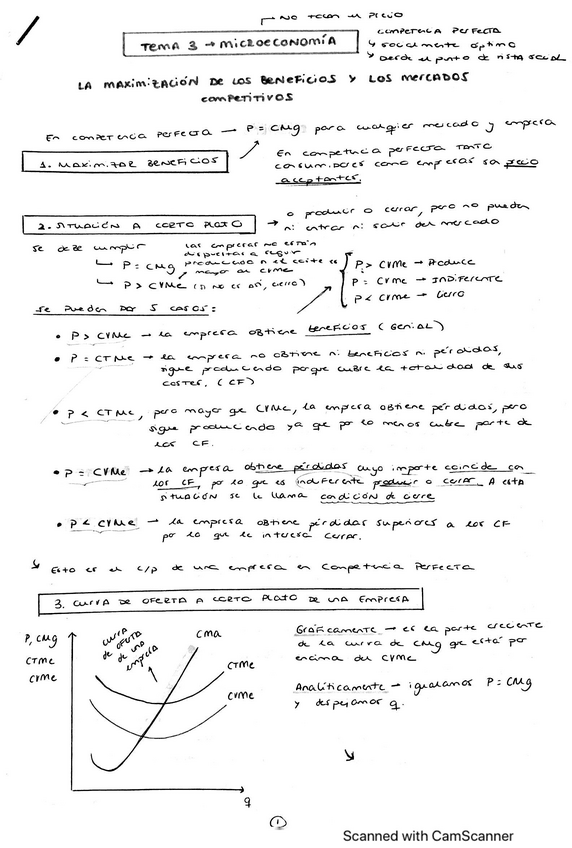 NO TOCAN EL PRECIO
COMPETENCIA PERFECTA
↳ SOCIALMENTE ÓPTIMO
↳ DESDE EL PUNTO DE VISTA SOCIAL
TEMA 3 → MICROECONOMÍA
LA MAXIMIZACIÓN DE LOS BENEFICIOS Y LOS MERCADOS
COMPETITIVOS
En competencia perfecta → P = CMg para cualquier mercado y empresa
1. MAXIMIZAR BENEFICIOS
En competencia perfecta tanto
consumidores como empresas son precio
aceptantes.
2. SITUACIÓN A CORTO PLAZO → o producir o cerrar, pero no pueden
ni entrar ni salir del mercado
Se debe cumplir
↳ P = CMg
↳ P > CVMe (si no es así, cierro)
las empresas no están
dispuestas a seguir
produciendo si el coste es
mayor al CVMe
P > CVMe → Produce
P = CVMe → INDIFERENTE
P < CVMe → Cierro
Se pueden dar 5 casos:
• P > CVMe → la empresa obtiene beneficios (Genial)
• P = CTMe → la empresa no obtiene ni beneficios ni pérdidas,
sigue produciendo porque cubre la totalidad de sus
costes. (CF)
• P < CTMe, pero mayor qe CVMe, la empresa obtiene pérdidas, pero
sigue produciendo ya qe por lo menos cubre parte de
los CF.
• P = CVMe → la empresa obtiene pérdidas cuyo importe coincide con
los CF, por lo que es indiferente producir o cerrar. A esta
situación se le llama condición de cierre
• P < CVMe → la empresa obtiene pérdidas superiores a los CF
por lo que le interesa cerrar.
↘ Esto es el c/p de una empresa en competencia perfecta
3. CURVA DE OFERTA A CORTO PLAZO DE UNA EMPRESA
P, CMg
CTMe
CVMe
curva
de oferta
de una
empresa
CMa
CTMe
CVMe
q
Gráficamente → es la parte creciente
de la curva de CMg qe está por
encima del CVMe
Analíticamente → igualamos P = CMg
y despejamos q.
1
Scanned with CamScanner